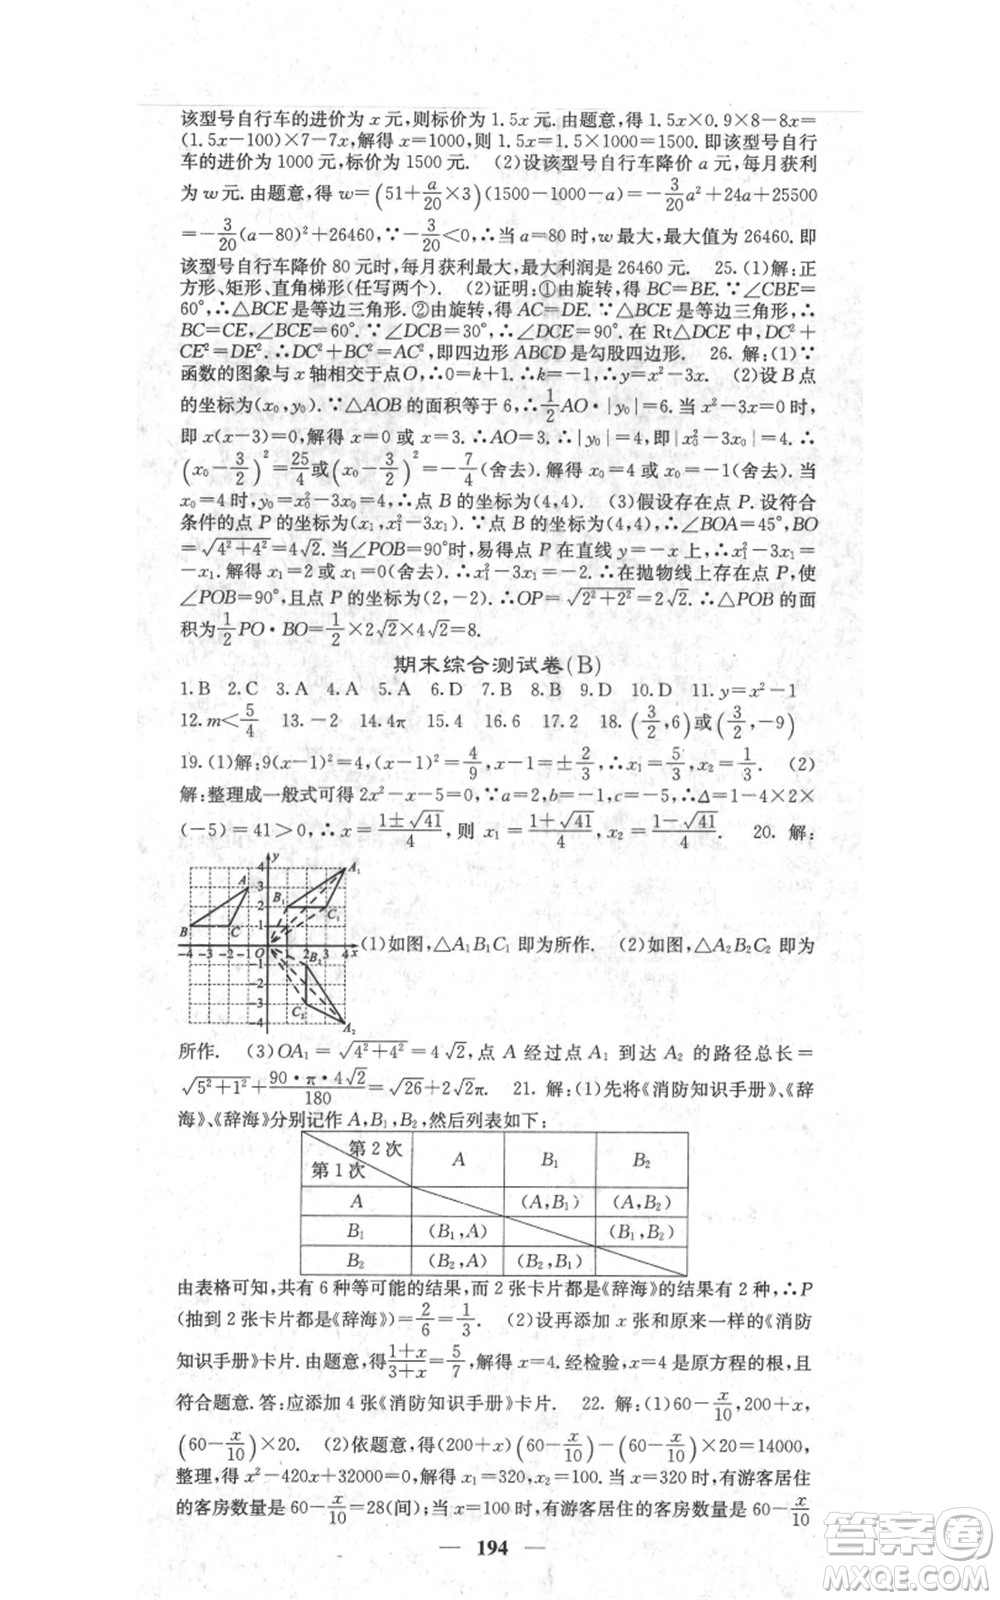 该型号自行车的进价为 x 元,则标价为 1.5x 元.由题意,得 1.5x×0.9×8-8x=
(1.5x-100)×7-7x,解得 x=1000,则 1.5x=1.5×1000=1500.即该型号自行
车的进价为 1000 元,标价为 1500 元. (2)设该型号自行车降价 a 元,每月获利
为 w 元.由题意,得 w=(51+a/20×3)(1500-1000-a)=-3/20a²+24a+25500
=-3/20(a-80)²+26460,∵-3/20<0,∴当 a=80 时,w 最大,最大值为 26460.即
该型号自行车降价 80 元时,每月获利最大,最大利润是 26460 元. 25.(1)解:正
方形、矩形、直角梯形(任写两个). (2)证明:①由旋转,得 BC=BE.∵∠CBE=
60°,∴△BCE 是等边三角形.②由旋转,得 AC=DE.∵△BCE 是等边三角形,∴
BC=CE,∠BCE=60°.∵∠DCB=30°,∴∠DCE=90°.在 Rt△DCE 中,DC²+
CE²=DE²,∴DC²+BC²=AC²,即四边形 ABCD 是勾股四边形. 26.解:(1)∵
函数的图象与 x 轴相交于点O,∴0=k+1,∴k=-1,∴y=x²-3x. (2)设 B 点
的坐标为(x₀,y₀).∵△AOB 的面积等于 6,∴1/2AO·|y₀|=6.当 x²-3x=0 时,
即 x(x-3)=0,解得 x=0 或 x=3.∴AO=3.∴|y₀|=4,即|x₀²-3x₀|=4.∴
(x₀-3/2)²=25/4或(x₀-3/2)²=-7/4(舍去).解得 x₀=4 或 x₀=-1(舍去).当
x₀=4 时,y₀=x₀²-3x₀=4,∴点 B 的坐标为(4,4). (3)假设存在点 P.设符合
条件的点 P 的坐标为(x₁,x₁²-3x₁).∵点 B 的坐标为(4,4),∴∠BOA=45°,BO
=√(4²+4²)=4√2.当∠POB=90°时,易得点 P 在直线 y=-x 上,∴x₁²-3x₁=
-x₁.解得 x₁=2 或 x₁=0(舍去).∴x₁²-3x₁=-2.∴在抛物线上存在点 P,使
∠POB=90°,且点 P 的坐标为(2,-2).∴OP=√(2²+2²)=2√2.∴△POB 的面
积为1/2PO·BO=1/2×2√2×4√2=8.
期末综合测试卷(B)
1.B 2.C 3.A 4.A 5.A 6.D 7.D 8.B 9.D 10.D 11.y=x²-1
12.m<5/4 13.-2 14.4π 15.4 16.6 17.2 18.(3/2,6)或(3/2,-9)
19.(1)解:9(x-1)²=4,(x-1)²=4/9,x-1=±2/3,∴x₁=5/3,x₂=1/3. (2)
解:整理成一般式可得 2x²-x-5=0,∵a=2,b=-1,c=-5,∴Δ=1-4×2×
(-5)=41>0,∴x=(1±√41)/4,则 x₁=(1+√41)/4,x₂=(1-√41)/4. 20.解:
y
4 A A₁
3
2 B₁
1 B C C₁
-4 -3 -2 -1 O 2 3 4 x
-1 B₂
-2
-3 C₂
-4 A₂
(1)如图,△A₁B₁C₁ 即为所作. (2)如图,△A₂B₂C₂ 即为
所作. (3)OA₁=√(4²+4²)=4√2,点 A 经过点 A₁ 到达 A₂ 的路径总长=
√(5²+1²)+(90·π·4√2)/180=√26+2√2π. 21.解:(1)先将《消防知识手册》、《辞
海》、《辞海》分别记作 A,B₁,B₂,然后列表如下:
第 2 次 A B₁ B₂
第 1 次
A (A,B₁) (A,B₂)
B₁ (B₁,A) (B₁,B₂)
B₂ (B₂,A) (B₂,B₁)
由表格可知,共有 6 种等可能的结果,而 2 张卡片都是《辞海》的结果有 2 种,∴P
(抽到 2 张卡片都是《辞海》)=2/6=1/3. (2)设再添加 x 张和原来一样的《消防
知识手册》卡片.由题意,得(1+x)/(3+x)=5/7,解得 x=4.经检验,x=4 是原方程的根,且
符合题意.答:应添加 4 张《消防知识手册》卡片. 22.解:(1)60-x/10,200+x,
(60-x/10)×20. (2)依题意,得(200+x)(60-x/10)-(60-x/10)×20=14000,
整理,得 x²-420x+32000=0.解得 x₁=320,x₂=100.当 x=320 时,有游客居住
的客房数量是 60-x/10=28(间);当 x=100 时,有游客居住的客房数量是 60-x/10
— 194 —
答案圈
MXQE.COM